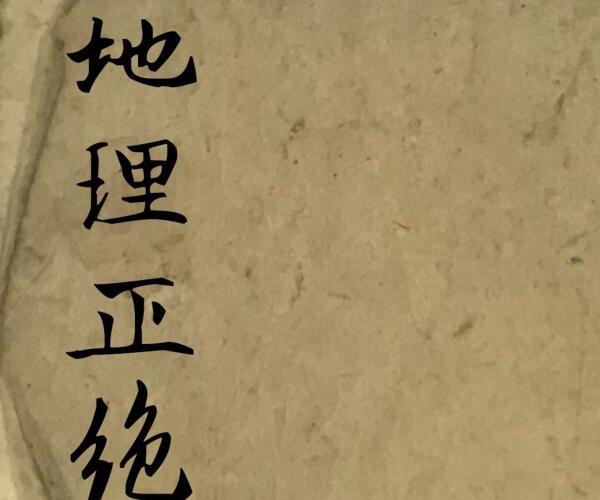 地理正绝